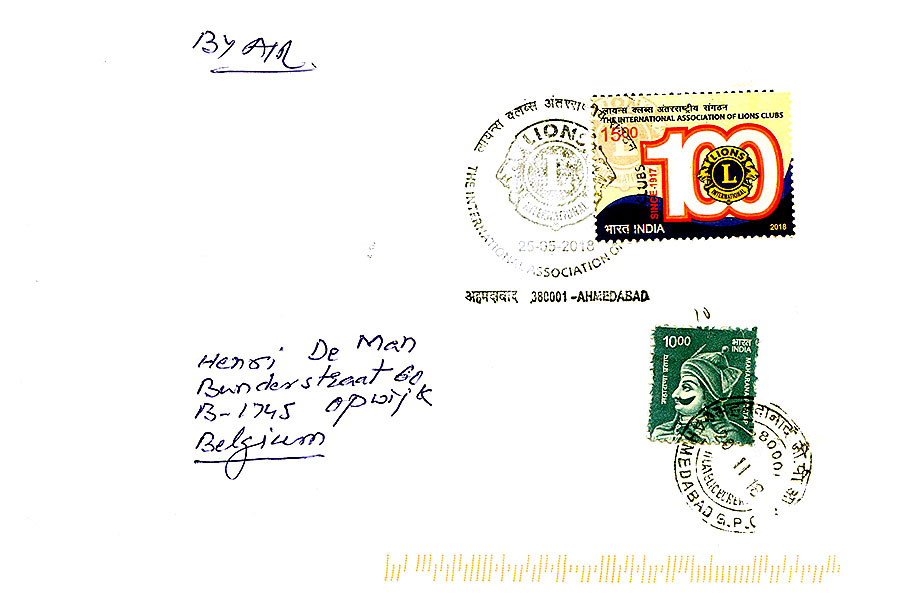 BY AIR.
लायन्स क्लब्स अंतरराष्ट्रीय
THE INTERNATIONAL ASSOCIATION OF CLUBS
LIONS
L
INTERNATIONAL
25-05-2018
अहमदाबाद 380001 - AHMEDABAD
लायन्स क्लब्स अंतरराष्ट्रीय संगठन
THE INTERNATIONAL ASSOCIATION OF LIONS CLUBS
1500
SINCE-1917
100
LIONS
L
INTERNATIONAL
भारत INDIA
2018
10
1000
भारत
INDIA
महाराणा प्रताप
MAHARANA
Henri De Man
Bunderstraat 60
B-1745 opwijk
Belgium
AHMEDABAD G.P.O